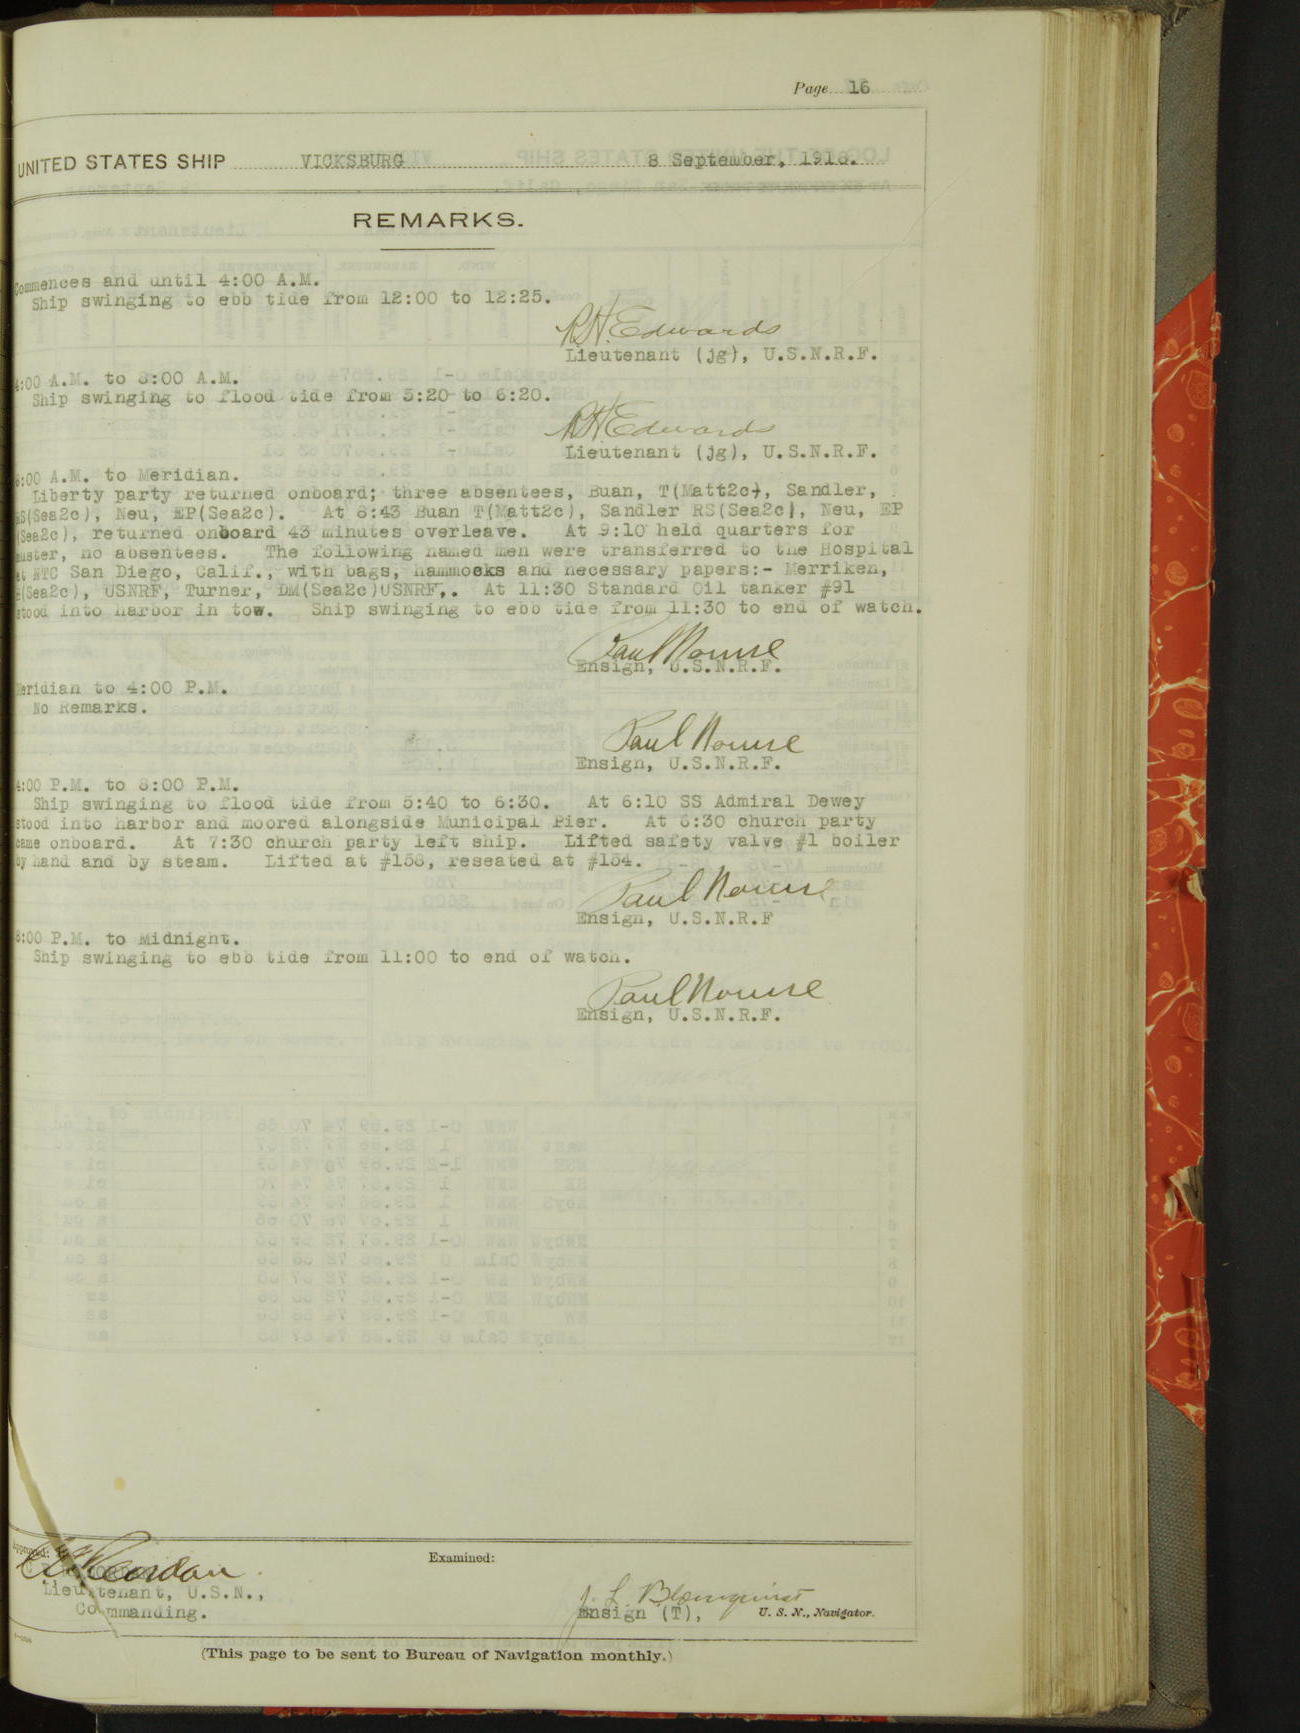 Page 16
UNITED STATES SHIP VICKSBURG 8 September, 1918.
REMARKS.
Commences and until 4:00 A.M.
Ship swinging to ebb tide from 12:00 to 12:25.
R.H. Edwards
Lieutenant (jg), U.S.N.R.F.
4:00 A.M. to 8:00 A.M.
Ship swinging to flood tide from 5:20 to 6:20.
R.H. Edwards
Lieutenant (jg), U.S.N.R.F.
8:00 A.M. to Meridian.
Liberty party returned onboard; three absentees, Buan, T(Matt2c), Sandler,
RS(Sea2c), Neu, EP(Sea2c). At 8:43 Buan T(Matt2c), Sandler RS(Sea2c), Neu, EP
(Sea2c), returned onboard 43 minutes overleave. At 9:10 held quarters for
muster, no absentees. The following named men were transferred to the Hospital
at NTC San Diego, Calif., with bags, hammocks and necessary papers:- Merriken,
(Sea2c), USNRF, Turner, DM(Sea2c)USNRF,. At 11:30 Standard Oil tanker #91
stood into harbor in tow. Ship swinging to ebb tide from 11:30 to end of watch.
Paul Nourse
Ensign, U.S.N.R.F.
Meridian to 4:00 P.M.
No Remarks.
Paul Nourse
Ensign, U.S.N.R.F.
4:00 P.M. to 8:00 P.M.
Ship swinging to flood tide from 5:40 to 6:30. At 6:10 SS Admiral Dewey
stood into harbor and moored alongside Municipal Pier. At 6:30 church party
came onboard. At 7:30 church party left ship. Lifted safety valve #1 boiler
by hand and by steam. Lifted at #158, reseated at #154.
Paul Nourse
Ensign, U.S.N.R.F
8:00 P.M. to Midnight.
Ship swinging to ebb tide from 11:00 to end of watch.
Paul Nourse
Ensign, U.S.N.R.F.
Approved:
Lieutenant, U.S.N.,
Commanding.
Examined:
J. L. Blomquist
Ensign (T), U. S. N., Navigator.
(This page to be sent to Bureau of Navigation monthly.)